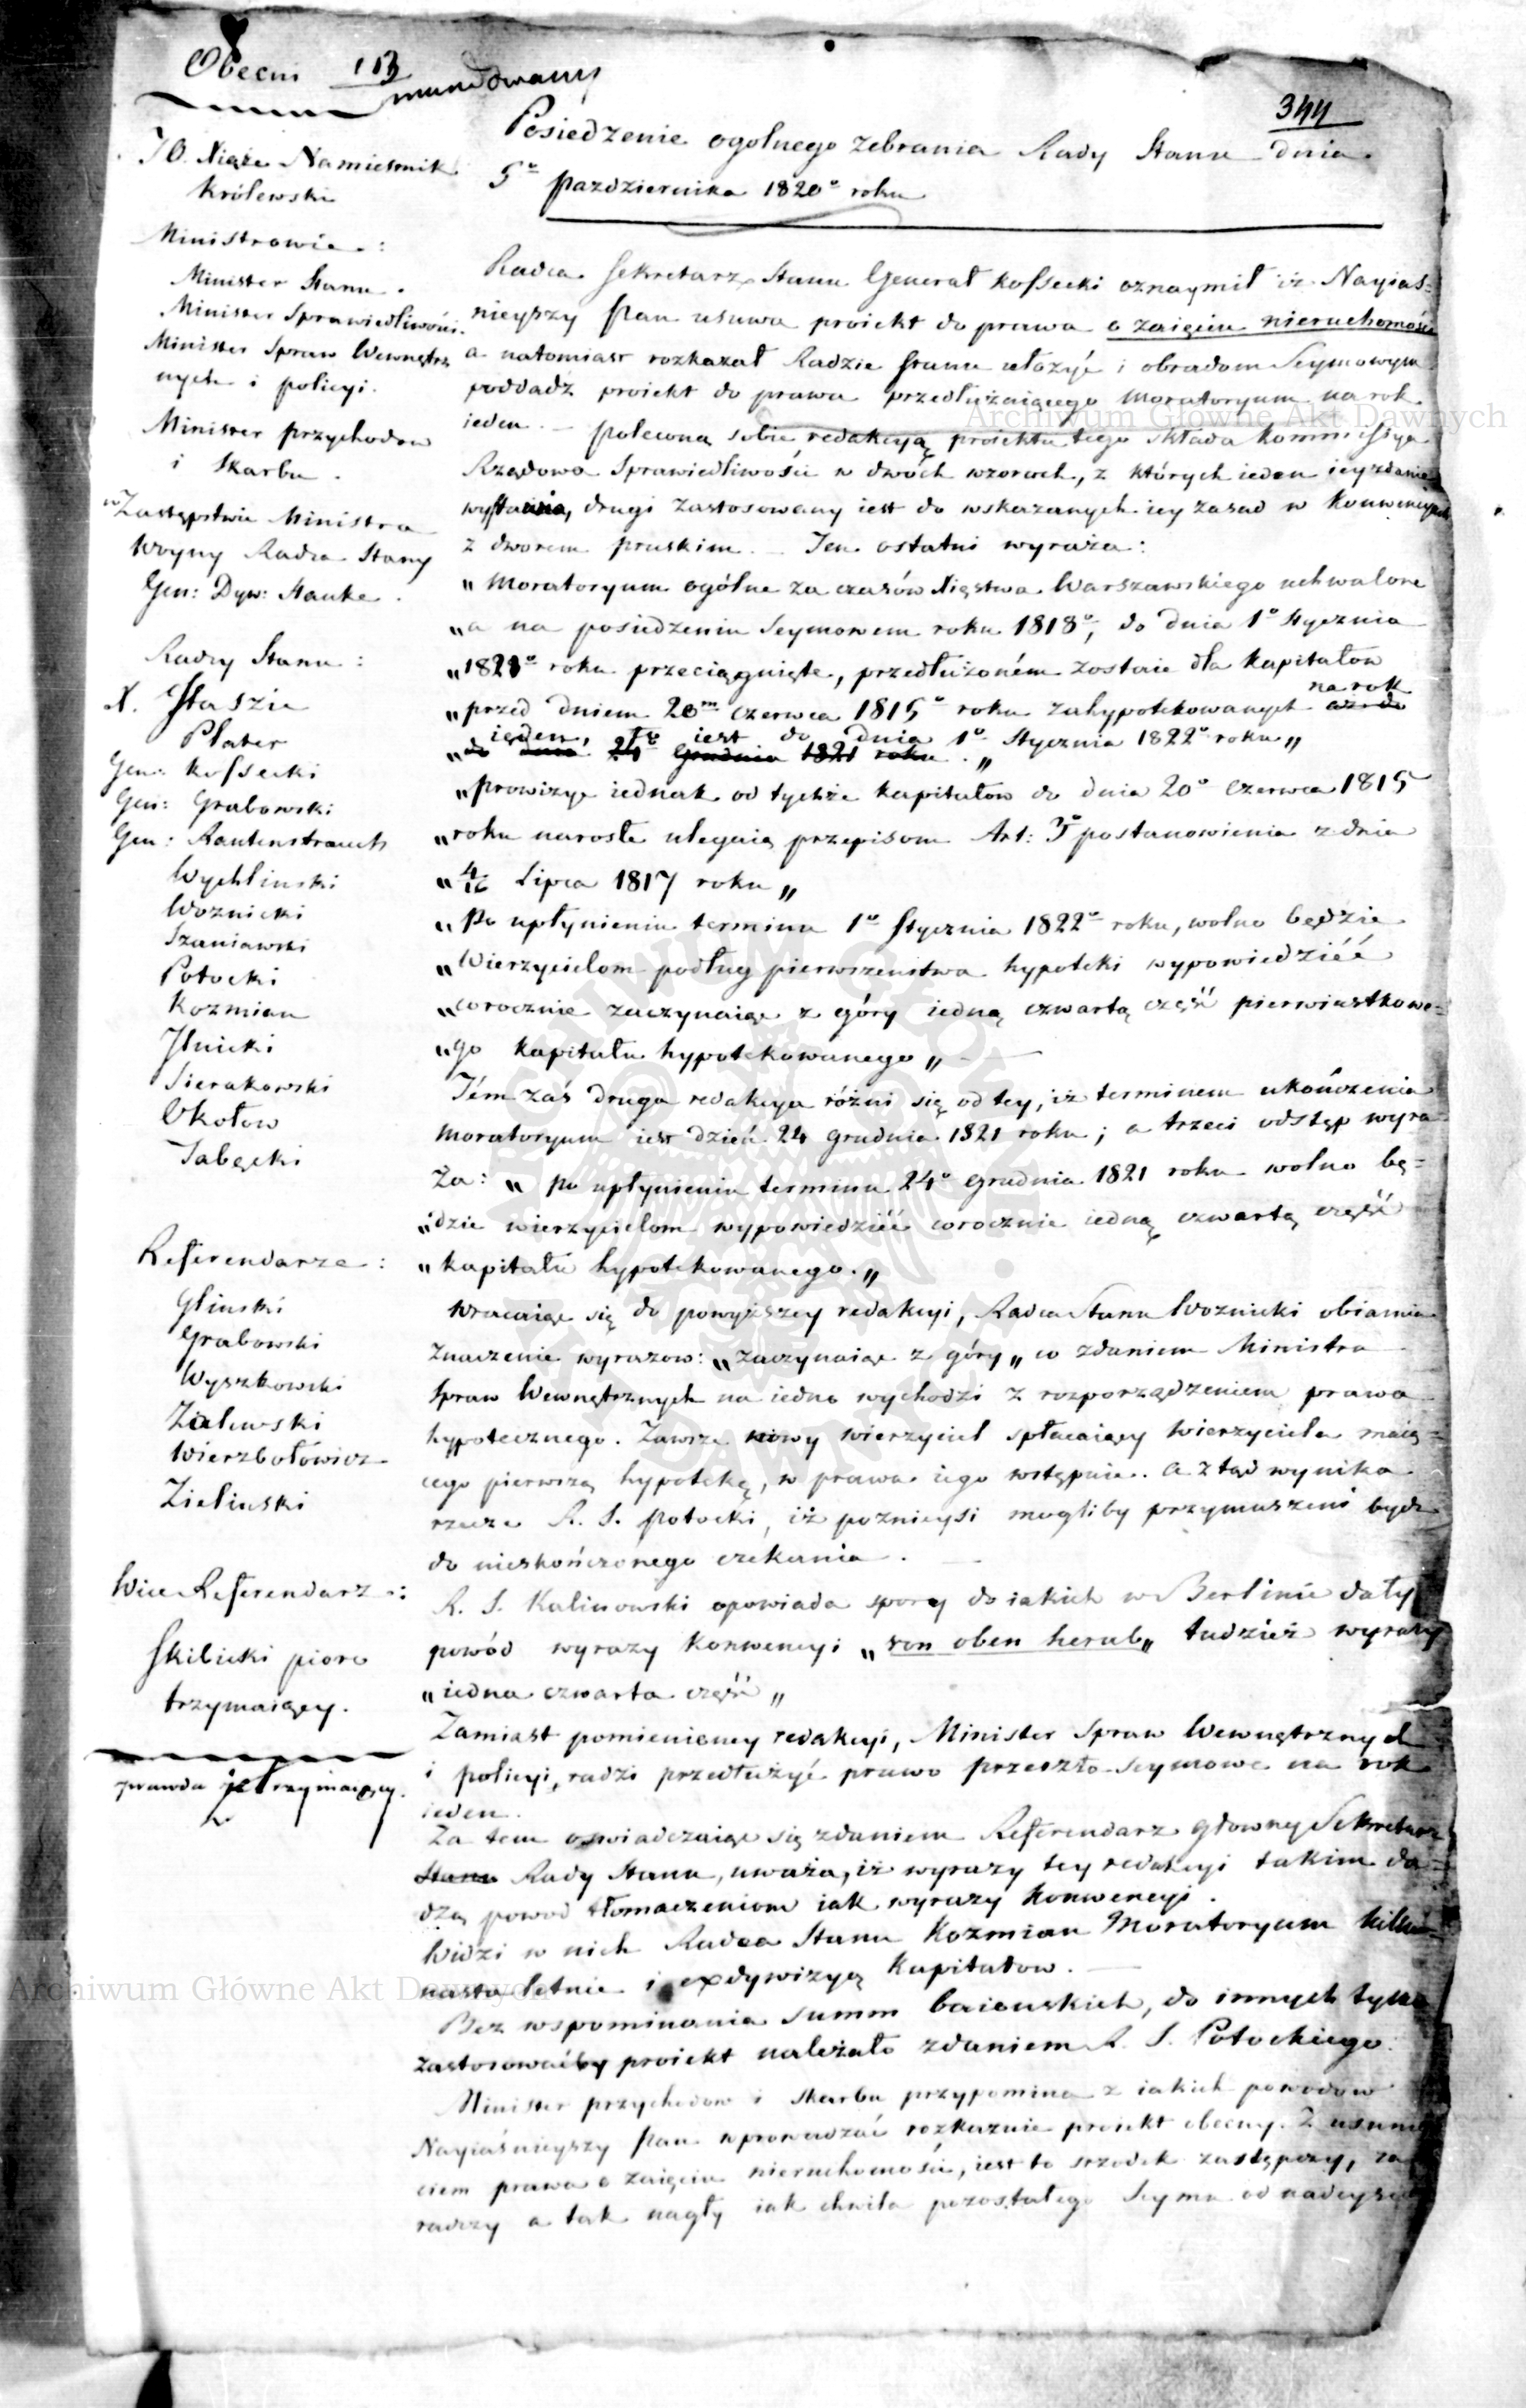 Obecni 113
mundowany
344
JO. Xiąże Namiestnik
Królewski
Ministrowie :
Minister Stanu .
Minister Sprawiedliwości.
Minister Spraw Wewnętrz
nych i policyi.
Minister przychodow
i Skarbu .
w Zastępstwie Ministra
Woyny Radca Stanu
Gen: Dyw: Hauke .
Radcy Stanu :
X. Staszic
Plater
Gen: Kossecki
Gen: Grabowski
Gen: Rautenstrauch
Wychliński
Woznicki
Szaniawski
Potocki
Kozmian
Jlnicki
Sierakowski
Okołow
Tabęcki
Referendarze :
Gliński
Grabowski
Wyszkowski
Zalewski
Wierzbołowicz
Zieliński
Wice-Referendarz :
Skibicki pioro
trzymaiący.
Posiedzenie ogolnego Zebrania Rady Stanu dnia
5º Pazdziernika 1820º roku
Radca Sekretarz Stanu Generał Kossecki oznaymił iż Nayias=
nieyszy Pan usuwa proiekt do prawa o zaięciu nieruchomości
a natomiast rozkazał Radzie Stanu ułożyć i obradom Seymowym
poddadź proiekt do prawa przedłużaiącego moratoryum na rok
ieden. – Poleconą sobie redakcyą proiektu tego składa Kommissya
Rządowa Sprawiedliwości w dwóch wzorach, z których ieden iey zdanie
wystawia, drugi zastosowany iest do wskazanych iey zasad w konwencyach
z dworem pruskim. – Ten ostatni wyraża:
„Moratoryum ogólne za czasów Xięstwa Warszawskiego uchwalone
„a na posiedzeniu Seymowem roku 1818º, do dnia 1º Stycznia
„1821º roku przeciągnięte, przedłużoném zostaie dla kapitałow
„przed dniem 20m czerwca 1815º roku zahypotekowanych na rok
„ieden, to iest do dnia 1º Stycznia 1822º roku„
„do dnia 24 Grudnia 1821 roku.„
„Prowizye iednak od tychże kapitałow do dnia 20º czerwca 1815
„roku narosłe ulegaią przepisom Art: 5º postanowienia z dnia
„4/16 Lipca 1817 roku„
„Po upłynieniu terminu 1º Stycznia 1822º roku, wolno będzie
„Wierzycielom podług pierwszeństwa hypoteki wypowiedzieć
„corocznie zaczynaiąc z góry iedną czwartą część pierwiastkowe=
„go kapitału hypotekowanego„ –
Tém zaś druga redakcya różni się od tey, iż terminem ukończenia
moratoryum iest dzień 24 grudnia 1821 roku; a trzeci odstęp wyra
ża: „Po upłynieniu terminu 24º grudnia 1821 roku wolno bę=
„dzie wierzycielom wypowiedzieć corocznie iedną czwartą część
„kapitału hypotekowanego.„
Wracaiąc się do powyższey redakcyi, Radca Stanu Woznicki obiawia
znaczenie wyrazow: „zaczynaiąc z góry„ co zdaniem Ministra
Spraw Wewnętrznych na iedno wychodzi z rozporządzeniem prawa
hypotecznego. Zawsze nowy wierzyciel spłacaiący wierzyciela maią=
cego pierwszą hypotekę, w prawa iego wstępuie. a ztąd wynika
rzecze R. S. Potocki, iż pozniejsi mogliby przymuszeni bydz
do nieskończonego czekania. –
R. S. Kalinowski opowiada spory do iakich w Berlinie dały
powód wyrazy konwencyi „von oben herab„ tudzież wyrazy
„iedna czwarta część„
Zamiast pomienioney redakcyi, Minister Spraw Wewnętrznych
i policyi, radzi przedłużyć prawo przeszło-seymowe na rok
ieden.
Za tem oswiadczaiąc się zdaniem Referendarz główny Sekretarz
Stanu Rady Stanu, uważa, iż wyrazy tey redakcyi takim da=
dzą powod tłomaczeniom iak wyrazy konwencyi.
Widzi w nich Radca Stanu Kozmian Moratoryum kilku=
nasto letnie i exdywizyą kapitałow. –
Bez wspominania summ baiońskich, do innych tylko
zastosowaćby proiekt należało zdaniem R. S. Potockiego.
Minister przychodow i skarbu przypomina z iakich powodow
Nayiaśnieyszy Pan wprowadzać rozkazuie proiekt obecny. Z usunię
ciem prawa o zaięciu nieruchomości, iest to srzodek zastępczy, za
radczy a tak nagły iak chwila pozostałego Seymu od nadeyscia
Archiwum Główne Akt Dawnych
Archiwum Główne Akt Dawnych